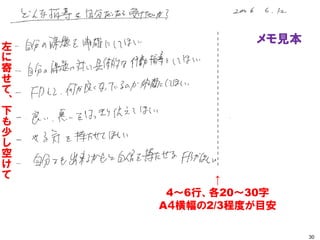 どんな指導を自分だったら受けたいか？ 2016 6.12
メモ見本
- 自分の課題を明確にしてほしい
- 自分の課題に対し具体的な行動指導をしてほしい
- FBして、何が良くなっているのか明確にしてほしい
- 良い、悪いをはっきり伝えてほしい
- やる気を持たせてほしい
- 自分でも出来るかもと自信を持たせるFBがほしい
左に寄せて、下も少し空けて
↑
4～6行、各20～30字
A4横幅の2/3程度が目安
30